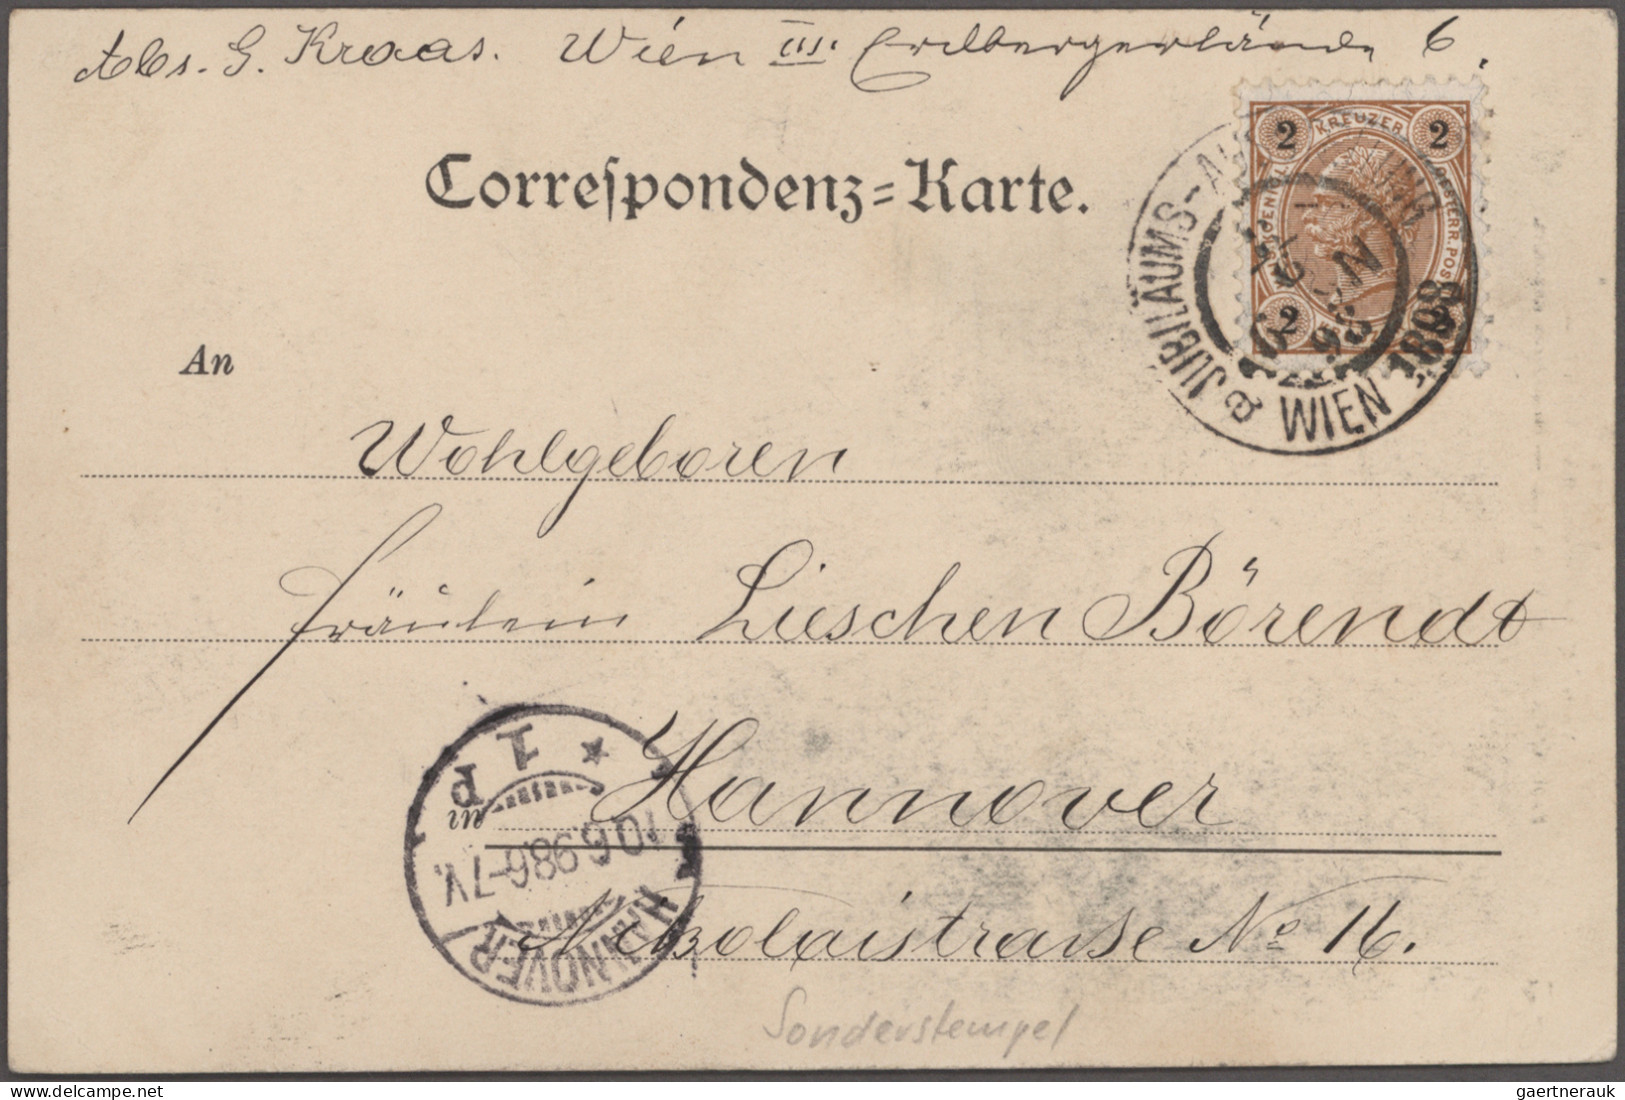 Abs. G. Kraas. Wien III. Erdbergerlände 6.
Correspondenz=Karte.
2 KREUZER 2
OESTERR. POST
2 2
JUBILÄUMS-AUSSTELLUNG
WIEN 1898
An
Wohlgeboren
Fräulein Lieschen Börendt
Hannover
Nikolaistraße No 16.
HANNOVER
1 p
10.6.98.6-7V.
Sonderstempel
gaertnerauk @ delcampe.net